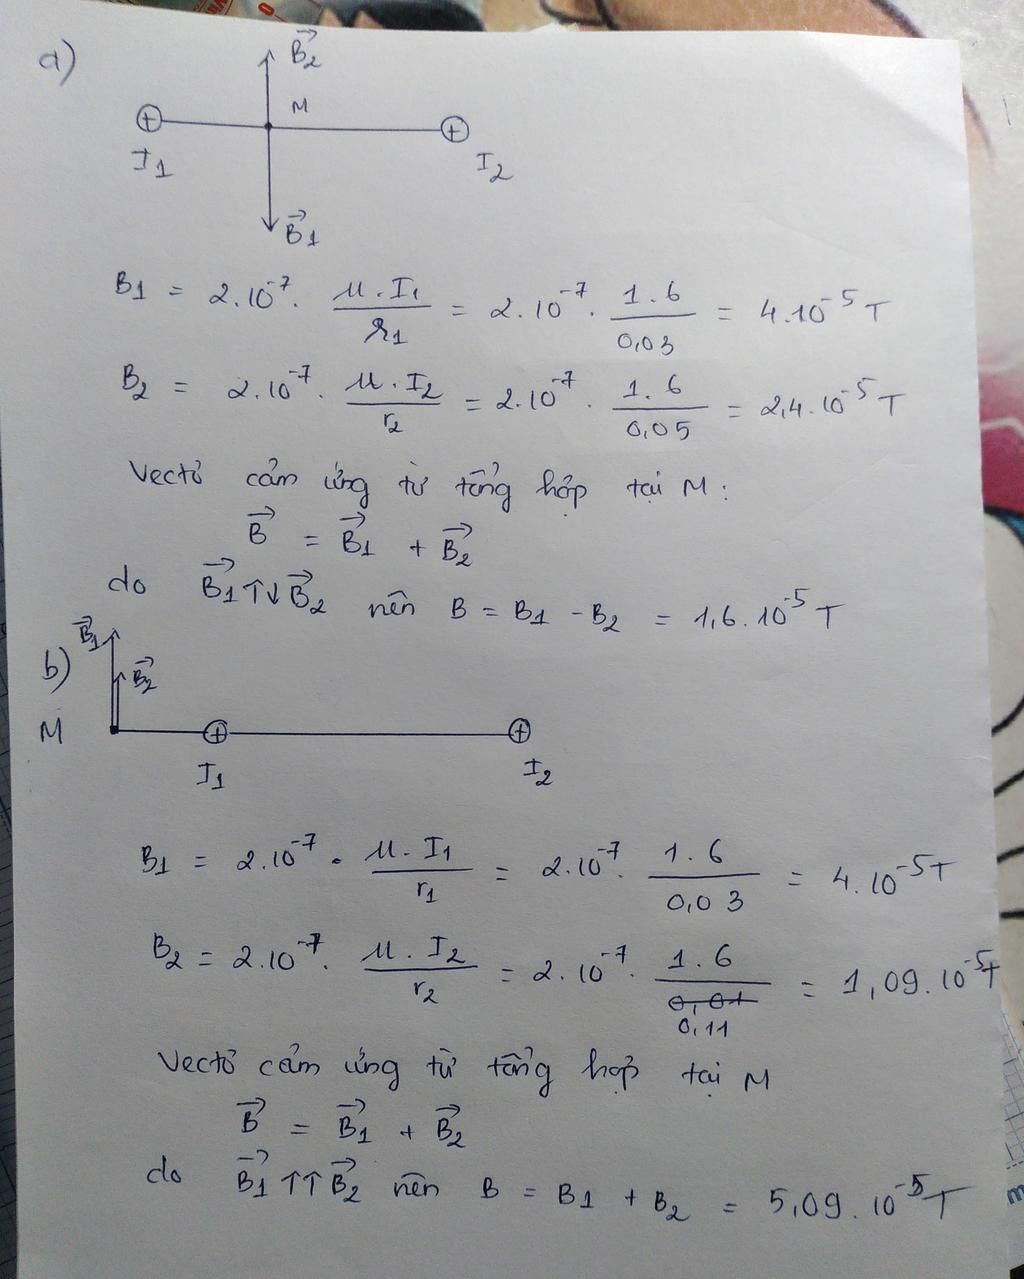 a)
B⃗2
M
I1
I2
B⃗1
B1 = 2.10⁻⁷. μ.I1/r1 = 2.10⁻⁷. 1.6/0,03 = 4.10⁻⁵ T
B2 = 2.10⁻⁷. μ.I2/r2 = 2.10⁻⁷. 1.6/0,05 = 2,4.10⁻⁵ T
Vectơ cảm ứng từ tổng hợp tại M:
B⃗ = B⃗1 + B⃗2
do B⃗1 ↑↓ B⃗2 nên B = B1 - B2 = 1,6.10⁻⁵ T
b)
B⃗1
B⃗2
M
I1
I2
B1 = 2.10⁻⁷. μ.I1/r1 = 2.10⁻⁷. 1.6/0,03 = 4.10⁻⁵ T
B2 = 2.10⁻⁷. μ.I2/r2 = 2.10⁻⁷. 1.6/0,11 = 1,09.10⁻⁵ T
Vectơ cảm ứng từ tổng hợp tại M
B⃗ = B⃗1 + B⃗2
do B⃗1 ↑↑ B⃗2 nên B = B1 + B2 = 5,09.10⁻⁵ T